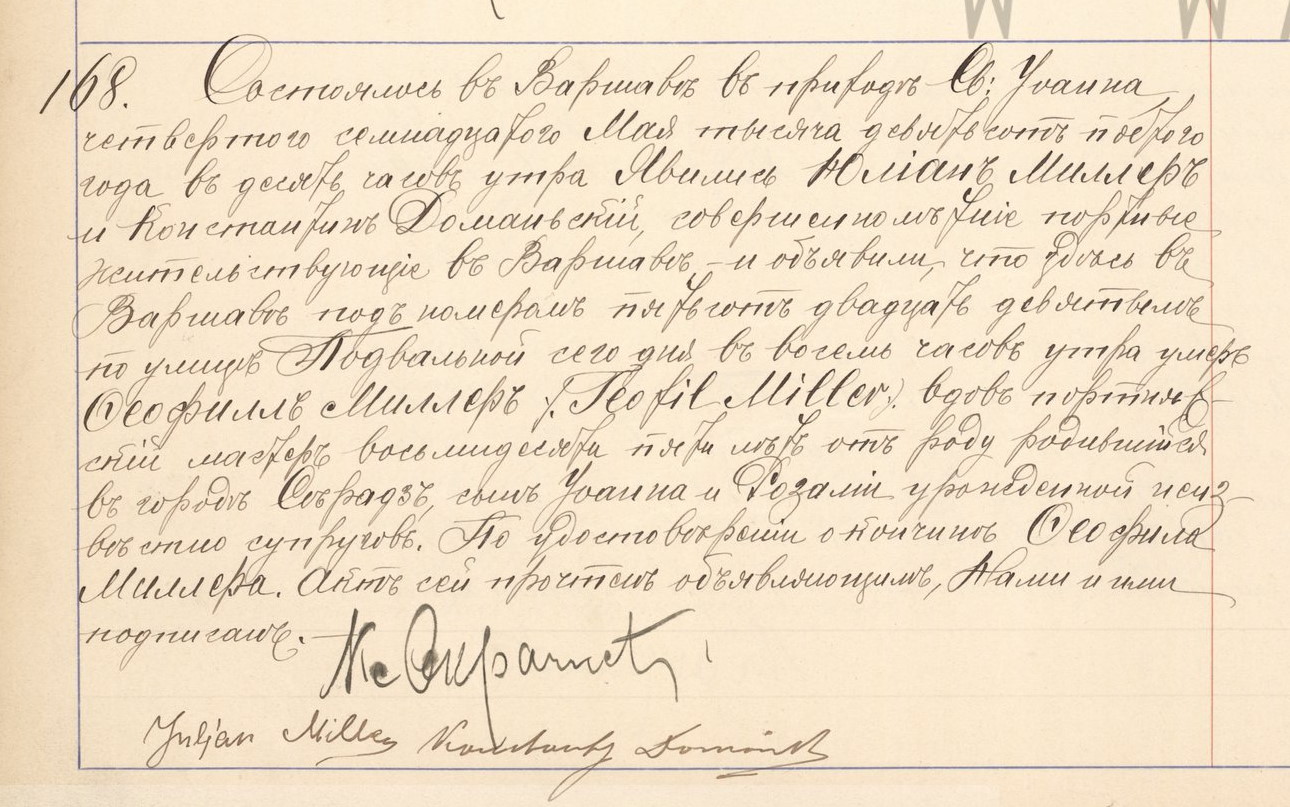 168. Состоялось въ Варшавѣ въ приходѣ Св: Іоанна
четвертого семнадцатого Мая тысяча девятьсотъ пятого
года въ десять часовъ утра Явились Юліанъ Миллеръ
и Константинъ Доманьскій, совершеннолѣтніе портные
жительствующіе въ Варшавѣ, – и объявили, что здѣсь въ
Варшавѣ подъ номеромъ пятьсотъ двадцать девятымъ
по улицѣ Подвальной сего дня въ восемь часовъ утра умеръ
Ѳеофиллъ Миллеръ /:Teofil Miller:/ вдовъ портнов-
скій мастеръ восьмидесяти пяти лѣтъ отъ роду родившійся
въ городѣ Сѣрадзѣ, сынъ Іоанна и Розаліи урожденной неиз-
вѣстно супруговъ. По удостовѣреніи о кончинѣ Ѳеофила
Миллера. Актъ сей прочтенъ объявляющимъ, Нами и ими
подписанъ.
Julian Miller Konstanty Domański